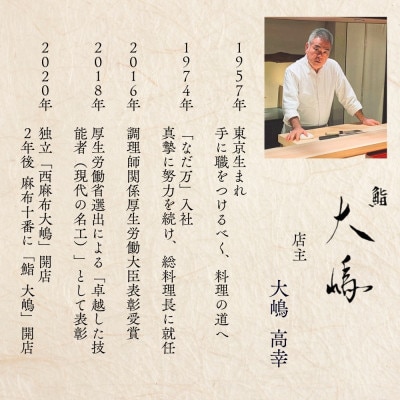 鮨
大嶋
店主
大嶋 高幸
1957年 東京生まれ
手に職をつけるべく、料理の道へ
1974年 「なだ万」入社
真摯に努力を続け、総料理長に就任
2016年 調理師関係厚生労働大臣表彰受賞
2018年 厚生労働省選出による「卓越した技
能者（現代の名工）」として表彰
2020年 独立「西麻布大嶋」開店
2年後 麻布十番に「鮨 大嶋」開店